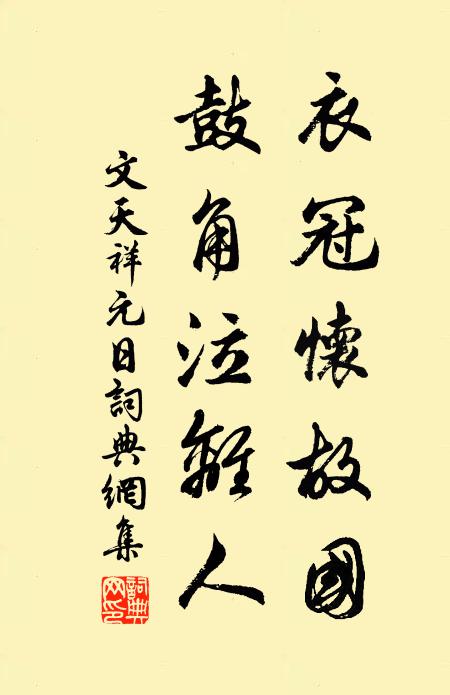 衣冠懷故國
鼓角泣離人
文天祥元日詞典網集
詞典網印